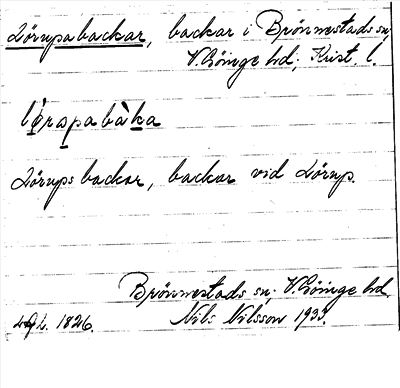 Lörupabackar, backar i Brönnestads sn,
V. Göinge hd; Krist. l.
lörəpabàka
Lörups backar, backar vid Lörup.
Brönnestads sn; V. Göinge hd.
Nils Nilsson 1933.
1826.